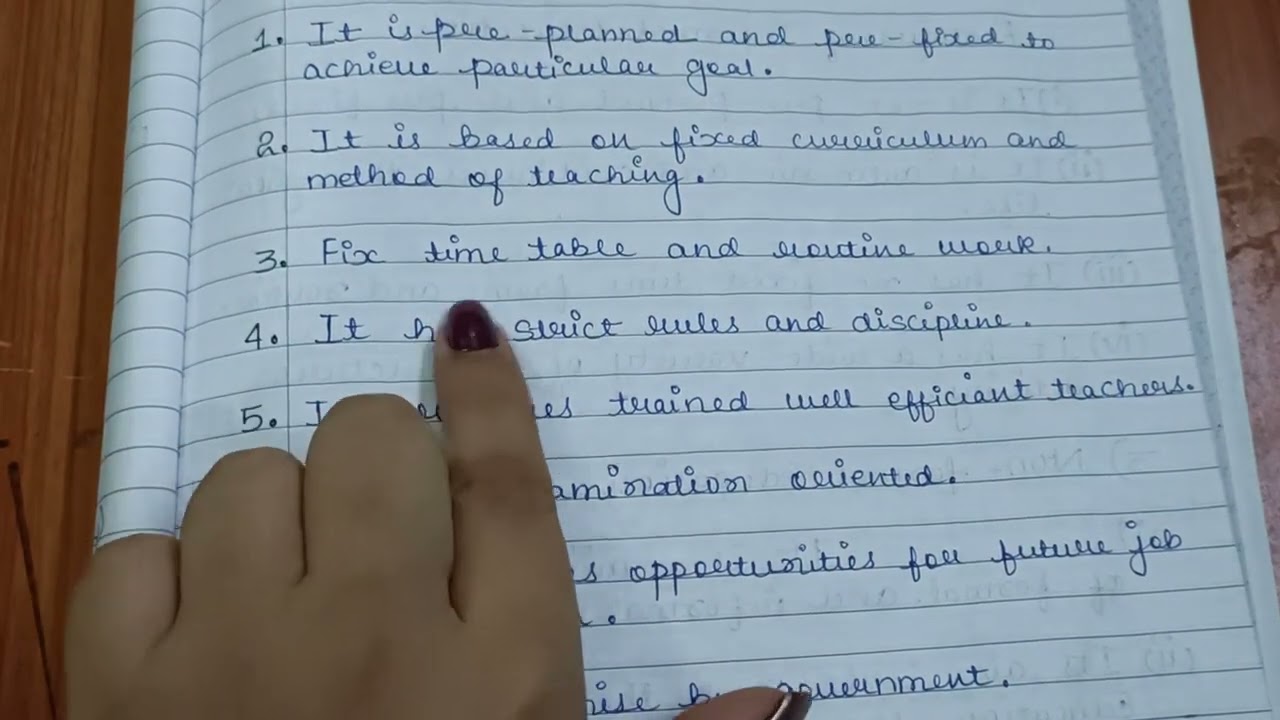 1. It is pre-planned and pre-fixed to
achieve particular goal.
2. It is based on fixed curriculum and
method of teaching.
3. Fix time table and routine work.
4. It strict rules and discipline.
5. trained well efficiant teachers.
oriented.
opportunities for future job
government.